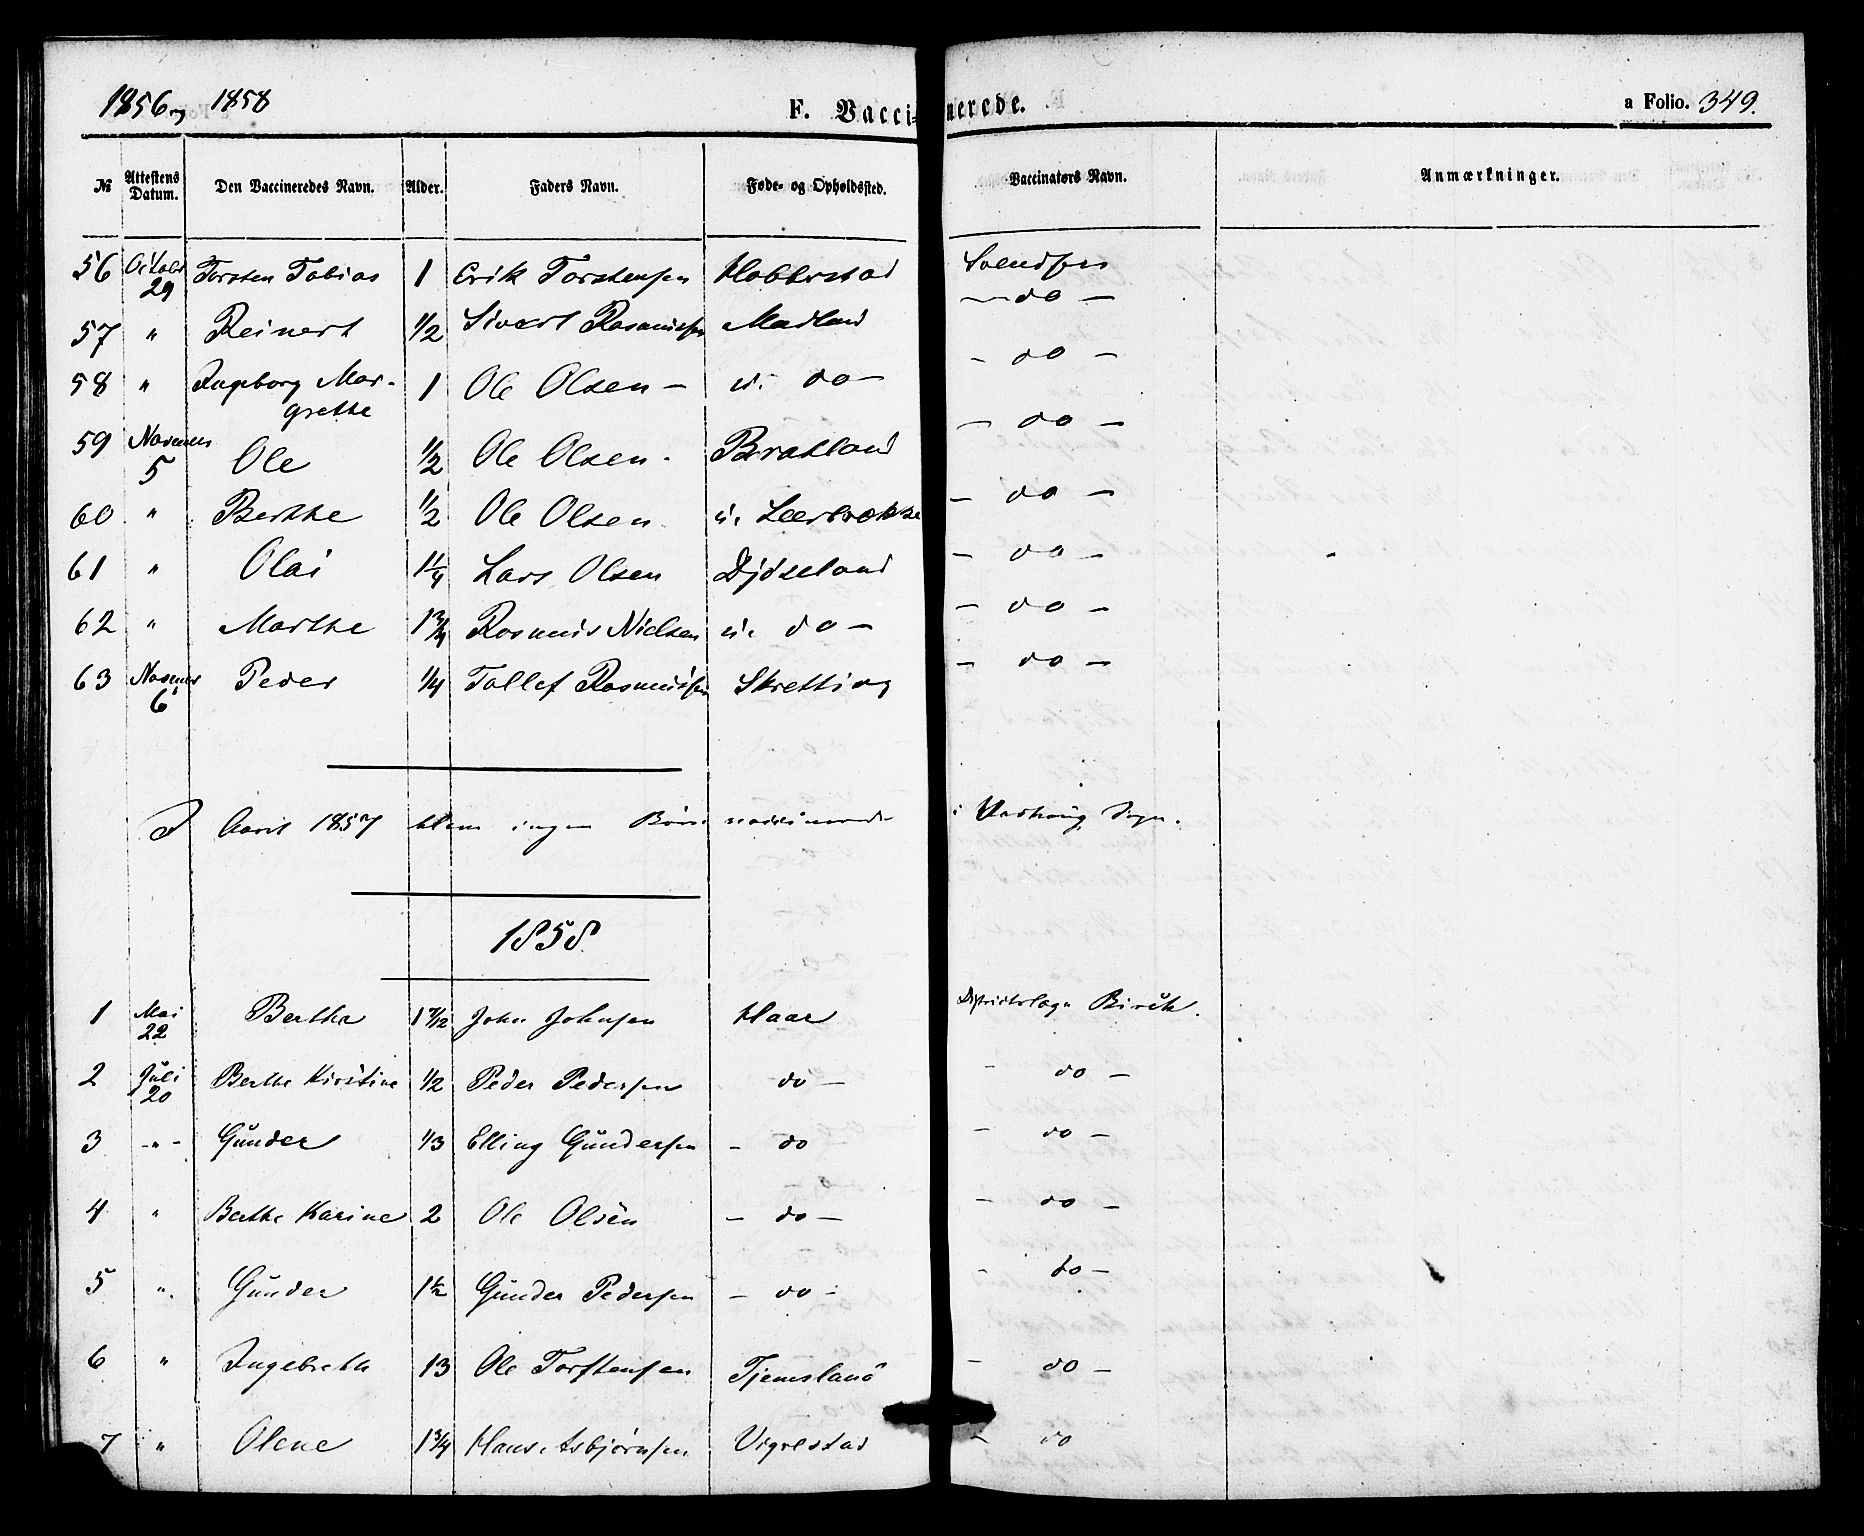 1856 og 1858
F. Vaccinerede.
a Folio. 349.
№ Attestens Datum. Den Vaccineredes Navn. Alder. Faders Navn. Føde- og Opholdsted. Vaccinators Navn. Anmærkninger.
56 29 Torsten Tobias 1 Erik Torstensen Hobberstad Svendsen
57 " Reinert 1/2 Sivert Rasmussen Madland - do -
58 " Ingeborg Mar- 1 Ole Olsen - do - - do -
grethe
59 5 Ole 1/2 Ole Olsen Bratland - do -
60 " Berthe 1/2 Ole Olsen Leerbrække - do -
61 " Olai 1 1/4 Lars Olsen Djøseland - do -
62 " Marthe 1 3/4 Rasmus Nielsen do - - do -
63 6 Peder 1/4 Tollef Rasmussen Skretting - do -
I Aaret 1857 blev ingen Børn vaccinerede i Varhoug Sogn.
1858
1 Mai 22 Berthe 1 7/12 John Johnsen Haar Districtslæge Birch.
2 Juli 20 Berthe Kirstine 1/2 Peder Pedersen do - - do -
3 - " - Gunder 1/3 Elling Gundersen - do - do -
4 " Berthe Karine 2 Ole Olsen - do - - do -
5 " Gunder 1 1/2 Gunder Pedersen - do - - do -
6 " Ingebreth 13 Ole Torstensen Tjemsland - do -
7 " Olene 1 3/4 Hans Asbjørnsen Vigrestad - do